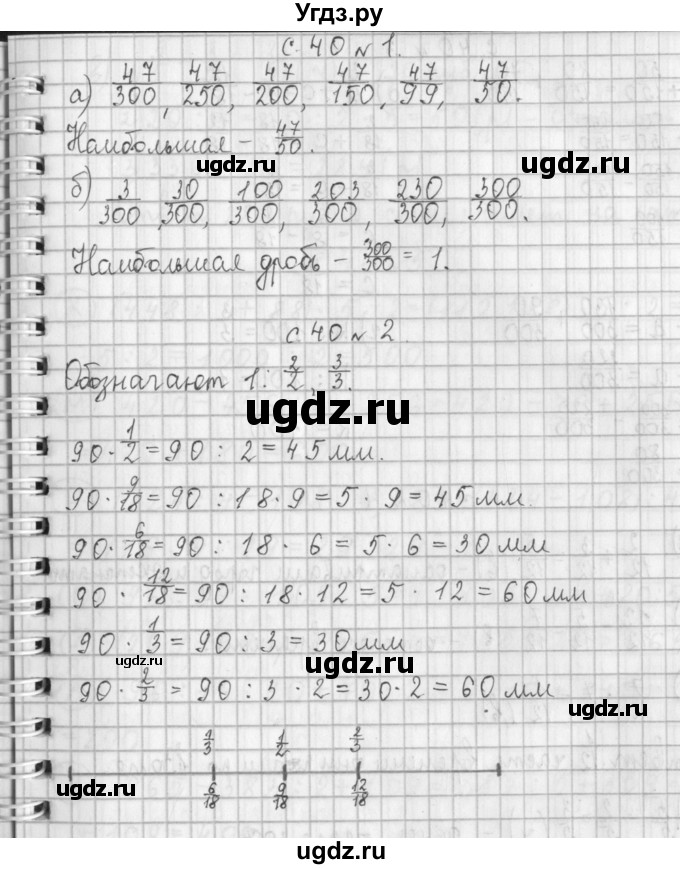 Угдз.ру
с. 40 № 1.
а) 47/300, 47/250, 47/200, 47/150, 47/99, 47/50.
Наибольшая – 47/50.
ugdz.ru ugdz.ru
б) 3/300, 30/300, 100/300, 203/300, 230/300, 300/300.
Наибольшая дробь – 300/300 = 1.
с. 40 № 2.
Обозначают 1: 2/2, 3/3.
ugdz.ru
90 · 1/2 = 90 : 2 = 45 мм.
90 · 9/18 = 90 : 18 · 9 = 5 · 9 = 45 мм
90 · 6/18 = 90 : 18 · 6 = 5 · 6 = 30 мм
90 · 12/18 = 90 : 18 · 12 = 5 · 12 = 60 мм
90 · 1/3 = 90 : 3 = 30 мм
ugdz.ru ugdz.ru
90 · 2/3 = 90 : 3 · 2 = 30 · 2 = 60 мм
ugdz.ru
1/3 1/2 2/3
6/18 9/18 12/18
ugdz.ru ugdz.ru
ugdz.ru